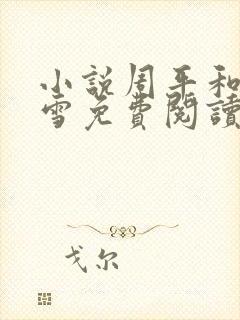 小說周平和
雪免費閱讀
戈尔